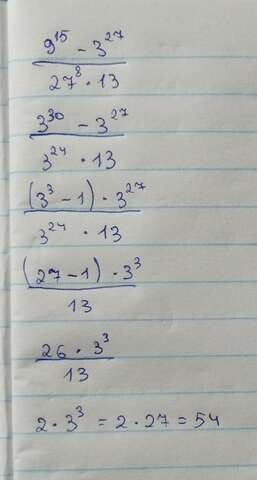 9¹⁵ - 3²⁷
27⁸ · 13
3³⁰ - 3²⁷
3²⁴ · 13
(3³ - 1) · 3²⁷
3²⁴ · 13
(27 - 1) · 3³
13
26 · 3³
13
2 · 3³ = 2 · 27 = 54